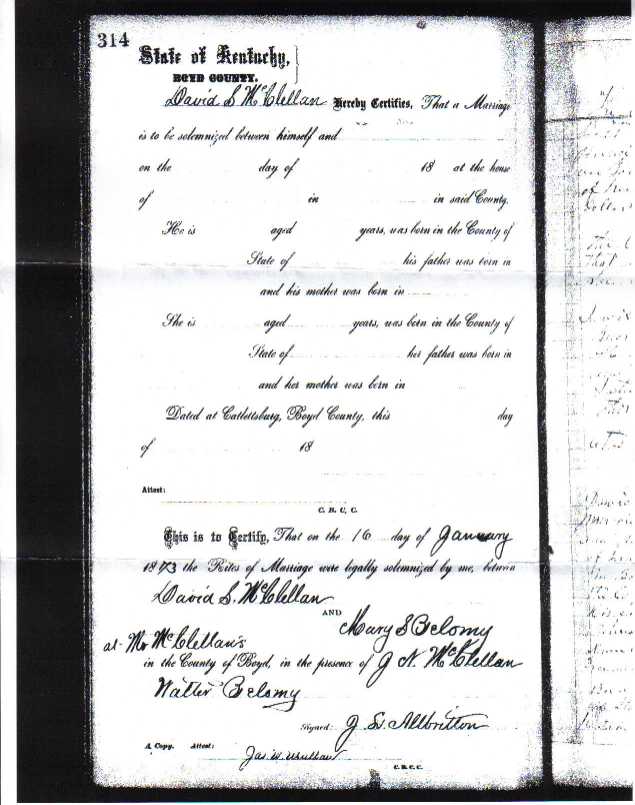 314
State of Kentucky,
BOYD COUNTY.
David S McClellan Hereby Certifies, That a Marriage
is to be solemnized between himself and
on the day of 18 at the house
of in in said County.
He is aged years, was born in the County of
State of his father was born in
and his mother was born in
She is aged years, was born in the County of
State of her father was born in
and her mother was born in
Dated at Catlettsburg, Boyd County, this day
of 18
Attest:
C. B. C. C.
This is to Certify, That on the 16 day of January
1873 the Rites of Marriage were legally solemnized by me, between
David S. McClellan
AND
Mary S Belomy
at Mr McClellan's
in the County of Boyd, in the presence of J N. McClellan
Walter Belomy
Signed: J. S. Allbritton
A Copy. Attest: Jas W.
C. B. C. C.